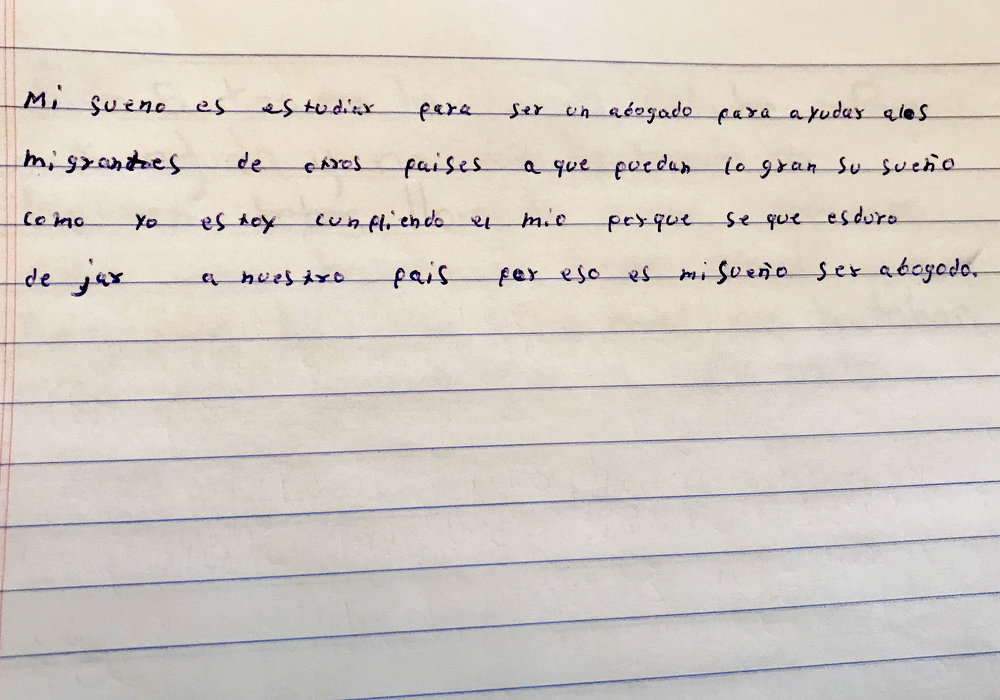 Mi sueno es estudiar para ser un abogado para ayudar alos
migrantes de otros paises a que puedan lo gran su sueño
como yo estoy cunpliendo el mio porque se que esduro
de jar a nuestro pais por eso es mi sueño ser abogado.